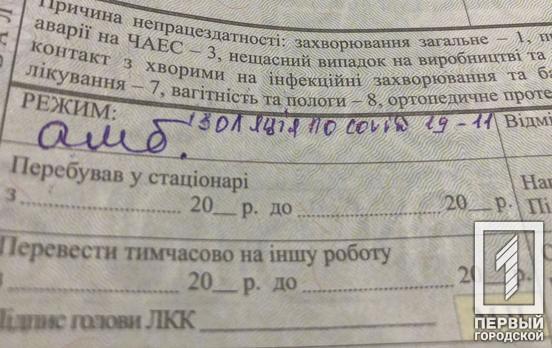 Причина непрацездатності: захворювання загальне – 1,
аварії на ЧАЕС – 3, нещасний випадок на виробництві та
контакт з хворими на інфекційні захворювання та
лікування – 7, вагітність та пологи – 8, ортопедичне
РЕЖИМ: ізоляція по covid 19 – 11
амб.
Перебував у стаціонарі
з 20__ р. до 20__ р.
Перевести тимчасово на іншу роботу
20__ р. до 20__ р.
Підпис голови ЛКК
1
ПЕРВЫЙ
ГОРОДСКОЙ